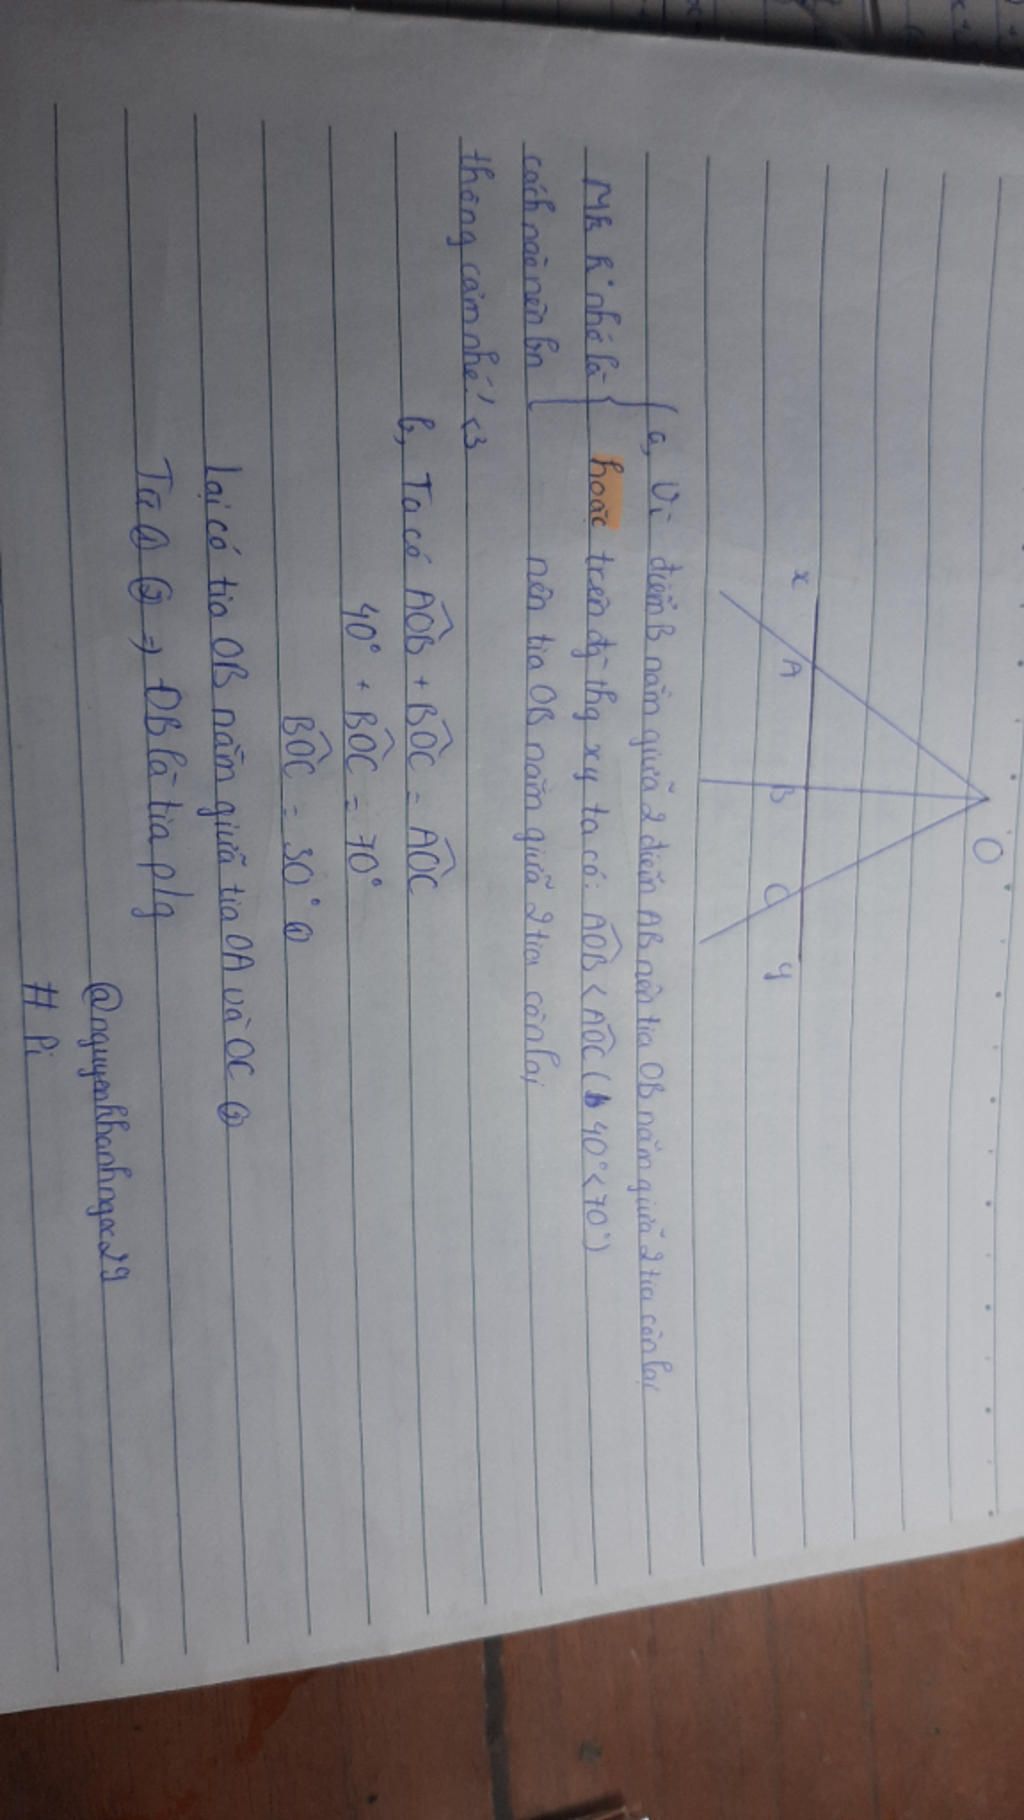 O
x A B C y
a, Vì điểm B nằm giữa 2 điểm AB nên tia OB nằm giữa 2 tia còn lại
Mk k nhớ là hoặc trên đg thg xy ta có: AOB < AOC ( 40° < 70° )
cách nào nên bn nên tia OB nằm giữa 2 tia còn lại
thông cảm nhé! <3
b, Ta có AOB + BOC = AOC
40° + BOC = 70°
BOC = 30° ①
Lại có tia OB nằm giữa tia OA và OC ②
Từ ① ② => OB là tia p/g
@nguyenkhanhngoc29
# Pi